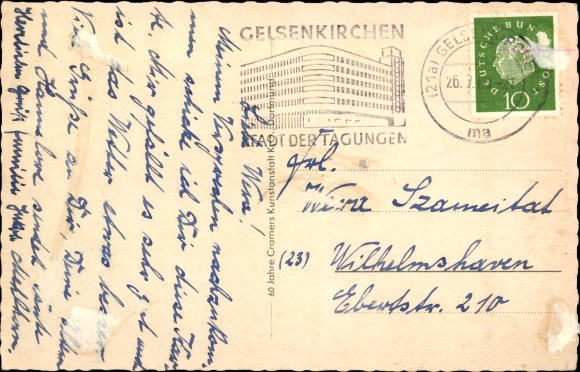 GELSENKIRCHEN
STADT DER TAGUNGEN
(21a) GELS
26. 7.
ma
DEUTSCHE BUNDESPOST
10
60 Jahre Cramers Kunstanstalt KG., Dortmund
Liebe Wera!
Meinem Versprechen nachzukom-
men schicke ich Dir diese Kar-
te. Hier gefällt es sehr gut und
ist das Wetter etwas besser
Viele Grüße an Dir, Deine
und Hannelore sendet
Herzliche Grüße Familie
Frl.
Wera Szameitat
(23) Wilhelmshaven
Ebertstr. 210